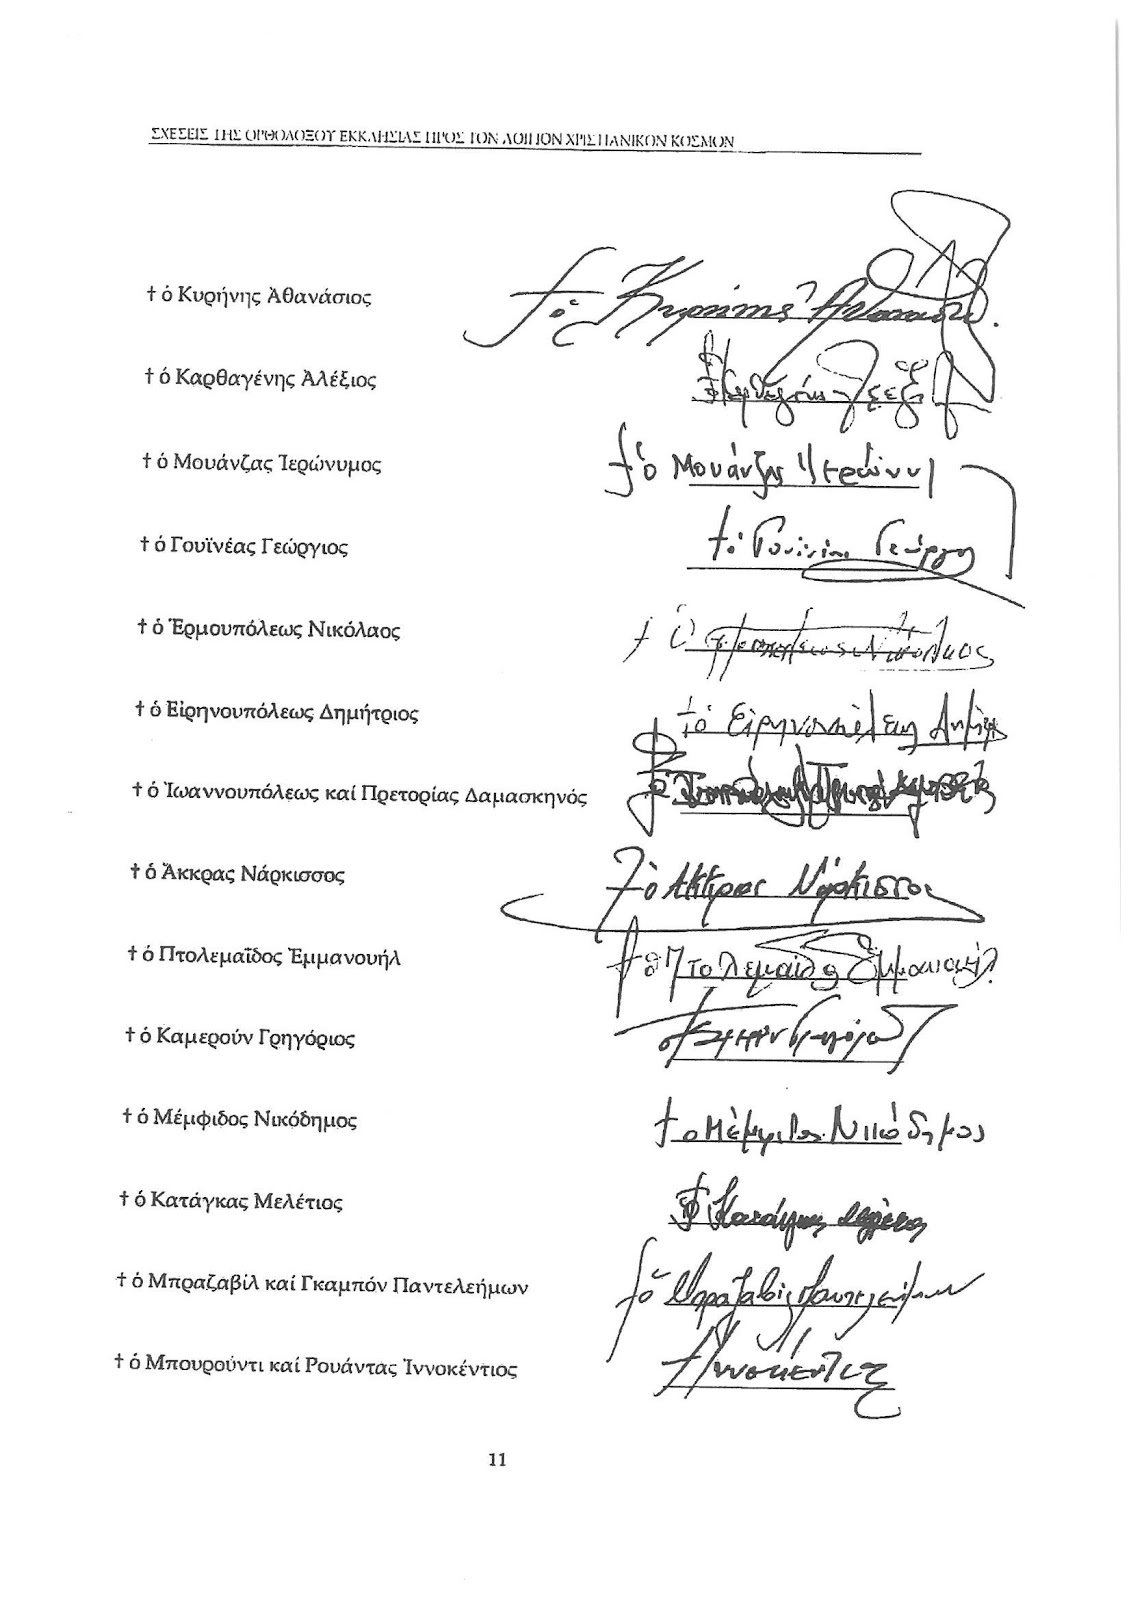 ΣΧΕΣΕΙΣ ΤΗΣ ΟΡΘΟΔΟΞΟΥ ΕΚΚΛΗΣΙΑΣ ΠΡΟΣ ΤΟΝ ΛΟΙΠΟΝ ΧΡΙΣΤΙΑΝΙΚΟΝ ΚΟΣΜΟΝ
† ὁ Κυρήνης Ἀθανάσιος † ὁ Κυρήνης
† ὁ Καρθαγένης Ἀλέξιος
† ὁ Μουάνζας Ἱερώνυμος † ὁ Μουάνζας
† ὁ Γουϊνέας Γεώργιος † ὁ
† ὁ Ἑρμουπόλεως Νικόλαος † Ὁ Νικόλαος
† ὁ Εἰρηνουπόλεως Δημήτριος † ὁ Εἰρηνουπόλεως
† ὁ Ἰωαννουπόλεως καί Πρετορίας Δαμασκηνός
† ὁ Ἄκκρας Νάρκισσος † ὁ Ἄκκρας Νάρκισσος
† ὁ Πτολεμαΐδος Ἐμμανουήλ † ὁ Πτολεμαΐδος Ἐμμανουήλ
† ὁ Καμερούν Γρηγόριος
† ὁ Μέμφιδος Νικόδημος † ὁ Μέμφιδος Νικόδημος
† ὁ Κατάγκας Μελέτιος † ὁ Κατάγκας
† ὁ Μπραζαβίλ καί Γκαμπόν Παντελεήμων † ὁ Μπραζαβίλ
† ὁ Μπουρούντι καί Ρουάντας Ἰννοκέντιος
11